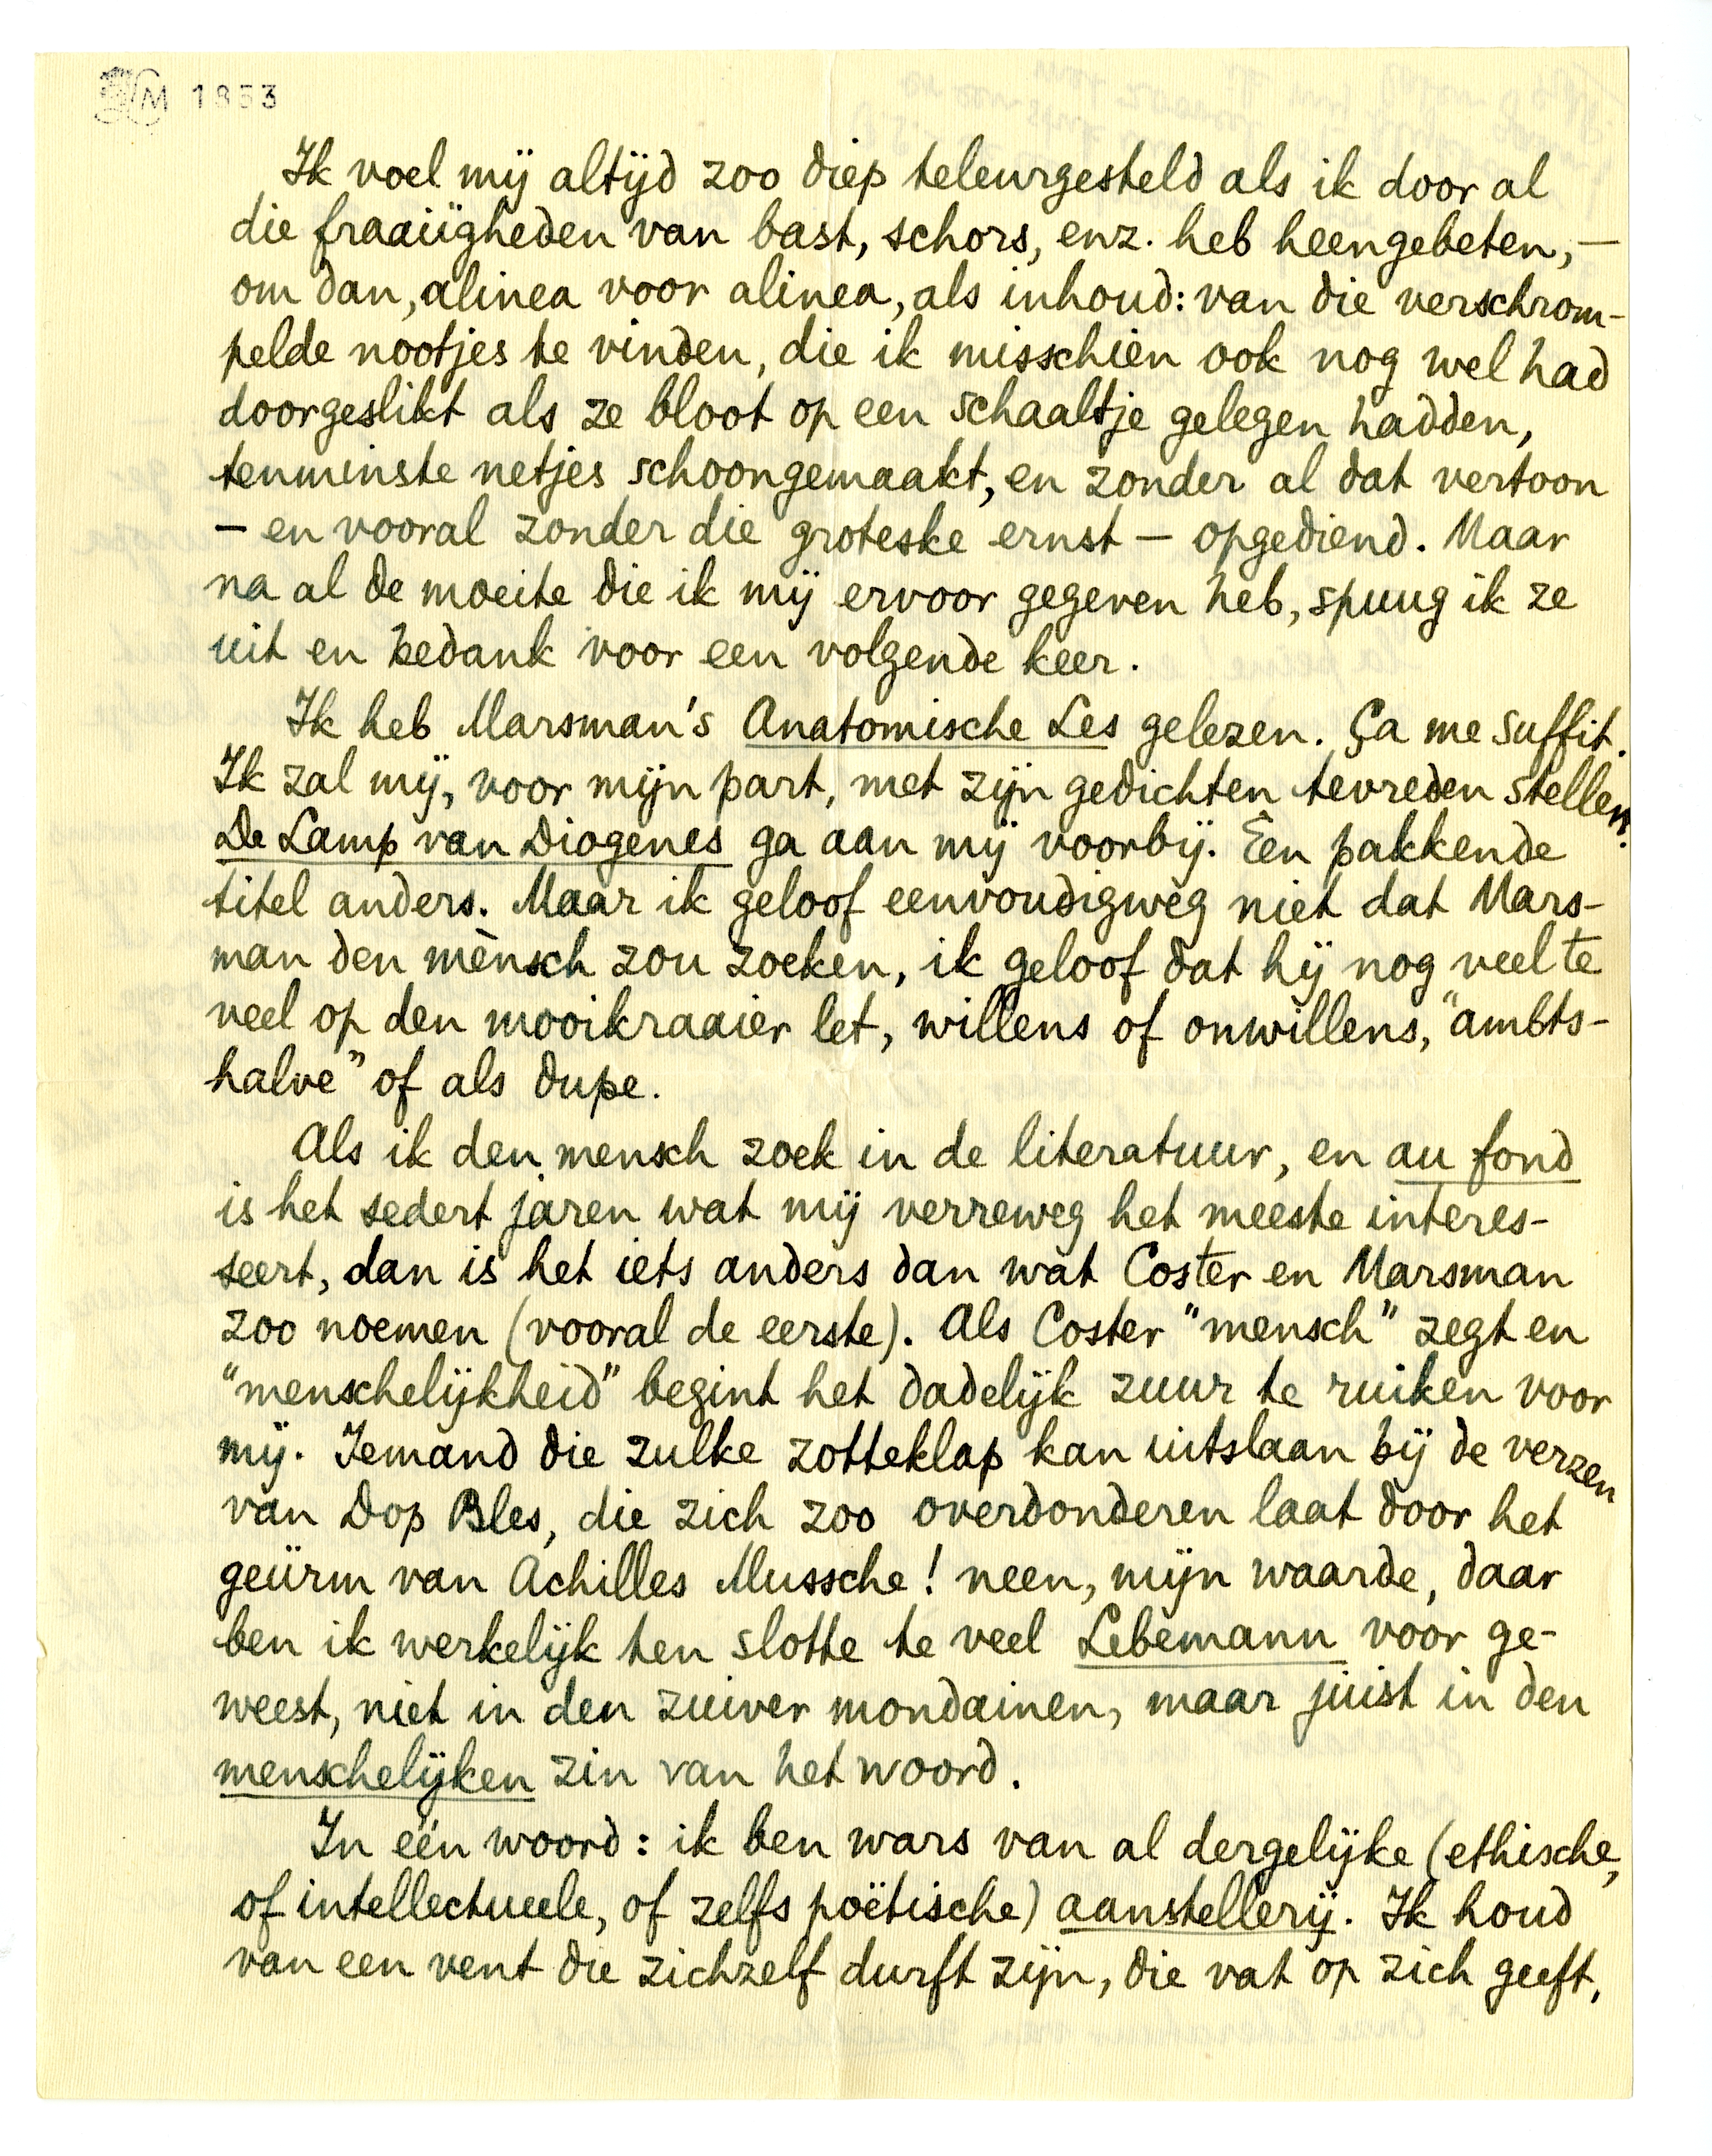 M 1853
Ik voel mij altijd zoo diep teleurgesteld als ik door al
die fraaiigheden van bast, schors, enz. heb heengebeten, —
om dan, alinea voor alinea, als inhoud: van die verschrom-
pelde nootjes te vinden, die ik misschien ook nog wel had
doorgeslikt als ze bloot op een schaaltje gelegen hadden,
tenminste netjes schoongemaakt, en zonder al dat vertoon
– en vooral zonder die groteske ernst – opgediend. Maar
na al de moeite die ik mij ervoor gegeven heb, spuug ik ze
uit en bedank voor een volgende keer.
Ik heb Marsman's Anatomische Les gelezen. Ça me suffit.
Ik zal mij, voor mijn part, met zijn gedichten tevreden stellen.
De Lamp van Diogenes ga aan mij voorbij. Een pakkende
titel anders. Maar ik geloof eenvoudigweg niet dat Mars-
man den mènsch zou zoeken, ik geloof dat hij nog veel te
veel op den mooikraaier let, willens of onwillens, "ambts-
halve" of als dupe.
Als ik den mensch zoek in de literatuur, en au fond
is het sedert jaren wat mij verreweg het meeste interes-
seert, dan is het iets anders dan wat Coster en Marsman
zoo noemen (vooral de eerste). Als Coster "mensch" zegt en
"menschelijkheid" begint het dadelijk zuur te ruiken voor
mij. Iemand die zulke zotteklap kan uitslaan bij de verzen
van Dop Bles, die zich zoo overdonderen laat door het
geürm van Achilles Mussche! neen, mijn waarde, daar
ben ik werkelijk ten slotte te veel Lebemann voor ge-
weest, niet in den zuiver mondainen, maar juist in den
menschelijken zin van het woord.
In één woord: ik ben wars van al dergelijke (ethische,
of intellectueele, of zelfs poëtische) aanstellerij. Ik houd
van een vent die zichzelf durft zijn, die vat op zich geeft,